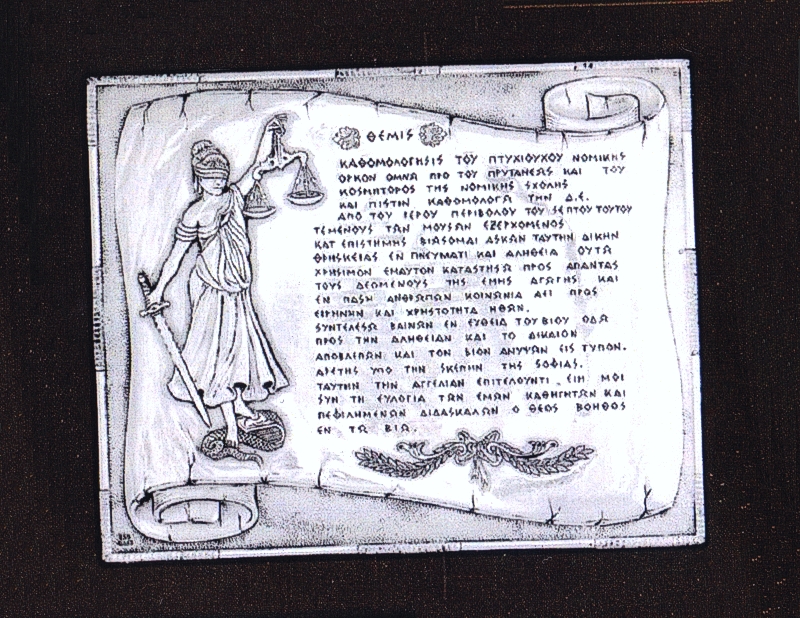 ΘΕΜΙΣ
ΚΑΘΟΜΟΛΟΓΗΣΙΣ ΤΟΥ ΠΤΥΧΙΟΥΧΟΥ ΝΟΜΙΚΗΣ
ΟΡΚΟΝ ΟΜΝΩ ΠΡΟ ΤΟΥ ΠΡΥΤΑΝΕΩΣ ΚΑΙ ΤΟΥ
ΚΟΣΜΗΤΟΡΟΣ ΤΗΣ ΝΟΜΙΚΗΣ ΣΧΟΛΗΣ
ΚΑΙ ΠΙΣΤΙΝ ΚΑΘΟΜΟΛΟΓΩ ΤΗΝ Δ.Ε.
ΑΠΟ ΤΟΥ ΙΕΡΟΥ ΠΕΡΙΒΟΛΟΥ ΤΟΥ ΣΕΠΤΟΥ ΤΟΥΤΟΥ
ΤΕΜΕΝΟΥΣ ΤΩΝ ΜΟΥΣΩΝ ΕΞΕΡΧΟΜΕΝΟΣ
ΚΑΤ ΕΠΙΣΤΗΜΗΣ ΒΙΩΣΟΜΑΙ ΑΣΚΩΝ ΤΑΥΤΗΝ ΔΙΚΗΝ
ΘΡΗΣΚΕΙΑΣ ΕΝ ΠΝΕΥΜΑΤΙ ΚΑΙ ΑΛΗΘΕΙΑ ΟΥΤΩ
ΧΡΗΣΙΜΟΝ ΕΜΑΥΤΟΝ ΚΑΤΑΣΤΗΣΩ ΠΡΟΣ ΑΠΑΝΤΑΣ
ΤΟΥΣ ΔΕΟΜΕΝΟΥΣ ΤΗΣ ΕΜΗΣ ΑΓΩΓΗΣ ΚΑΙ
ΕΝ ΠΑΣΗ ΑΝΘΡΩΠΩΝ ΚΟΙΝΩΝΙΑ ΑΕΙ ΠΡΟΣ
ΕΙΡΗΝΗΝ ΚΑΙ ΧΡΗΣΤΟΤΗΤΑ ΗΘΩΝ.
ΣΥΝΤΕΛΕΣΩ ΒΑΙΝΩΝ ΕΝ ΕΥΘΕΙΑ ΤΟΥ ΒΙΟΥ ΟΔΩ
ΠΡΟΣ ΤΗΝ ΑΛΗΘΕΙΑΝ ΚΑΙ ΤΟ ΔΙΚΑΙΟΝ
ΑΠΟΒΛΕΠΩΝ ΚΑΙ ΤΟΝ ΒΙΟΝ ΑΝΥΨΩΝ ΕΙΣ ΤΥΠΟΝ.
ΑΡΕΤΗΣ ΥΠΟ ΤΗΝ ΣΚΕΠΗΝ ΤΗΣ ΣΟΦΙΑΣ.
ΤΑΥΤΗΝ ΤΗΝ ΑΓΓΕΛΙΑΝ ΕΠΙΤΕΛΟΥΝΤΙ ΕΙΗ ΜΟΙ
ΣΥΝ ΤΗ ΕΥΛΟΓΙΑ ΤΩΝ ΕΜΩΝ ΚΑΘΗΓΗΤΩΝ ΚΑΙ
ΠΕΦΙΛΗΜΕΝΩΝ ΔΙΔΑΣΚΑΛΩΝ Ο ΘΕΟΣ ΒΟΗΘΟΣ
ΕΝ ΤΩ ΒΙΩ.